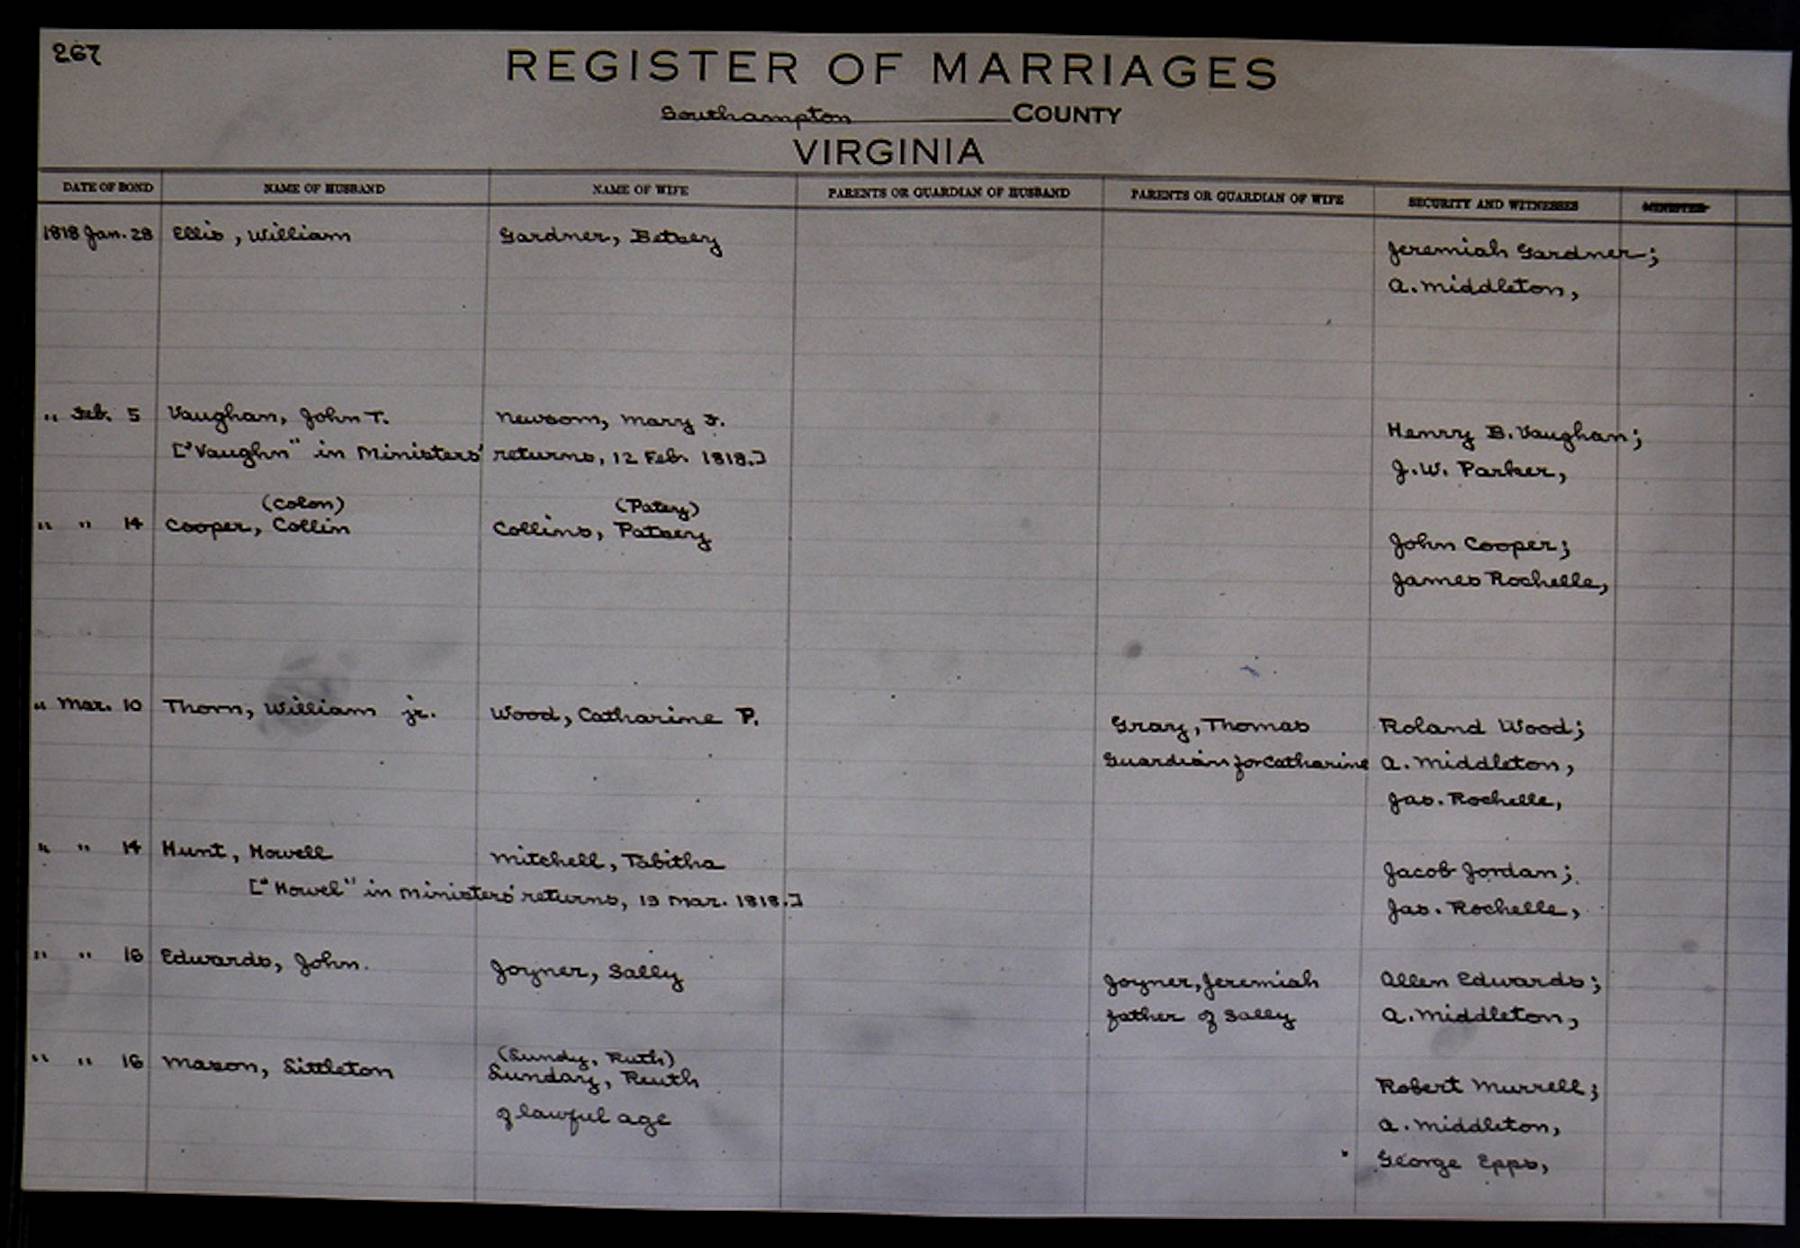 267
REGISTER OF MARRIAGES
Southampton COUNTY
VIRGINIA
DATE OF BOND NAME OF HUSBAND NAME OF WIFE PARENTS OR GUARDIAN OF HUSBAND PARENTS OR GUARDIAN OF WIFE SECURITY AND WITNESSES MINISTER
1818 Jan. 28 Ellis, William Gardner, Betsey Jeremiah Gardner;
A. Middleton,
" Feb. 5 Vaughan, John T. Newsom, Mary F. Henry B. Vaughan;
["Vaughn" in Ministers' returns, 12 Feb. 1818.] J.W. Parker,
(Colon) (Patsy)
" " 14 Cooper, Collin Collins, Patsey John Cooper;
James Rochelle,
" Mar. 10 Thorn, William jr. Wood, Catharine P. Gray, Thomas Roland Wood;
Guardian for Catharine A. Middleton,
Jas. Rochelle,
" " 14 Hunt, Howell Mitchell, Tabitha Jacob Jordan;
["Howel" in Ministers' returns, 19 Mar. 1818.] Jas. Rochelle,
" " 16 Edwards, John. Joyner, Sally Joyner, Jeremiah Allen Edwards;
father of Sally A. Middleton,
(Lundy, Ruth)
" " 16 Mason, Littleton Lunday, Reuth Robert Murrell;
of lawful age A. Middleton,
George Epps,